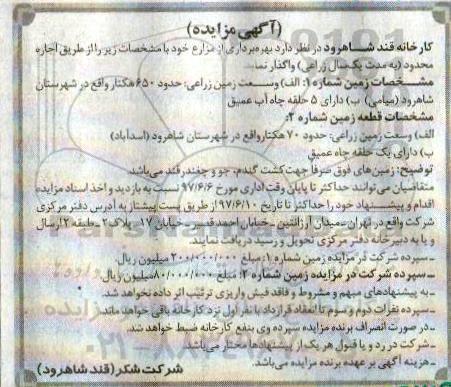 (آگهی مزایده)
کارخانه قند شاهرود در نظر دارد بهره‌برداری از مزارع خود با مشخصات زیر را از طریق اجاره
محدود (به مدت یک سال زراعی) واگذار نماید.
مشخصات زمین شماره ۱: الف) وسعت زمین زراعی: حدود ۶۵۰ هکتار واقع در شهرستان
شاهرود (میامی) ب) دارای ۵ حلقه چاه آب عمیق
مشخصات قطعه زمین شماره ۲:
الف) وسعت زمین زراعی: حدود ۷۰ هکتار واقع در شهرستان شاهرود (اسدآباد)
ب) دارای یک حلقه چاه عمیق
توضیح: زمین‌های فوق صرفاً جهت کشت گندم، جو و چغندرقند می‌باشد.
متقاضیان می‌توانند حداکثر تا پایان وقت اداری مورخ ۹۷/۶/۶ نسبت به بازدید و اخذ اسناد مزایده
اقدام و پیشنهاد خود را حداکثر تا تاریخ ۹۷/۶/۱۰ از طریق پست پیشتاز به آدرس دفتر مرکزی
شرکت واقع در تهران - میدان آرژانتین - خیابان احمد قصیر - خیابان ۱۷ - پلاک ۲ - طبقه ۲ ارسال
و یا به دبیرخانه دفتر مرکزی تحویل و رسید دریافت نمایند.
- سپرده شرکت در مزایده زمین شماره ۱: مبلغ ۲۰۰/۰۰۰/۰۰۰ میلیون ریال.
- سپرده شرکت در مزایده زمین شماره ۲: مبلغ ۸۰/۰۰۰/۰۰۰ میلیون ریال.
- به پیشنهادهای مبهم و مشروط و فاقد فیش واریزی ترتیب اثر داده نخواهد شد.
- سپرده نفرات دوم و سوم تا انعقاد قرارداد با نفر اول نزد کارخانه باقی خواهد ماند.
- در صورت انصراف برنده مزایده سپرده وی بنفع کارخانه ضبط خواهد شد.
- شرکت در رد و یا قبول هر یک از پیشنهادها مختار می‌باشد.
- هزینه آگهی بر عهده برنده مزایده می‌باشد.
شرکت شکر (قند شاهرود)